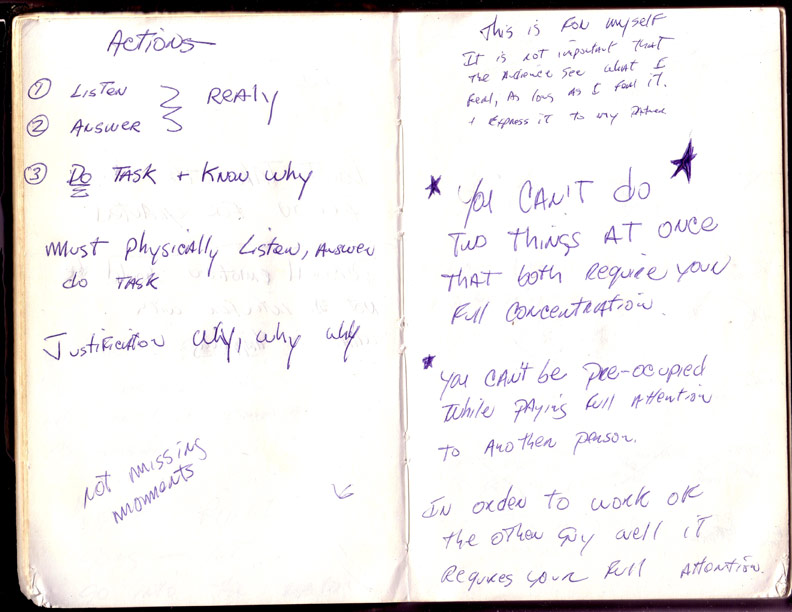 Actions
① Listen
② Answer
Realy
③ Do Task + Know why
Must physically Listen, Answer
do Task
Justification why, why why
not missing
moments
This is for myself
It is not important that
the Audience see what I
feel, as long as I feel it.
+ Express it to my
You can't do
two things at once
that both require your
full concentration.
You can't be pre-occupied
while paying full attention
to another person.
In order to work
the other guy well it
Requires your full attention.